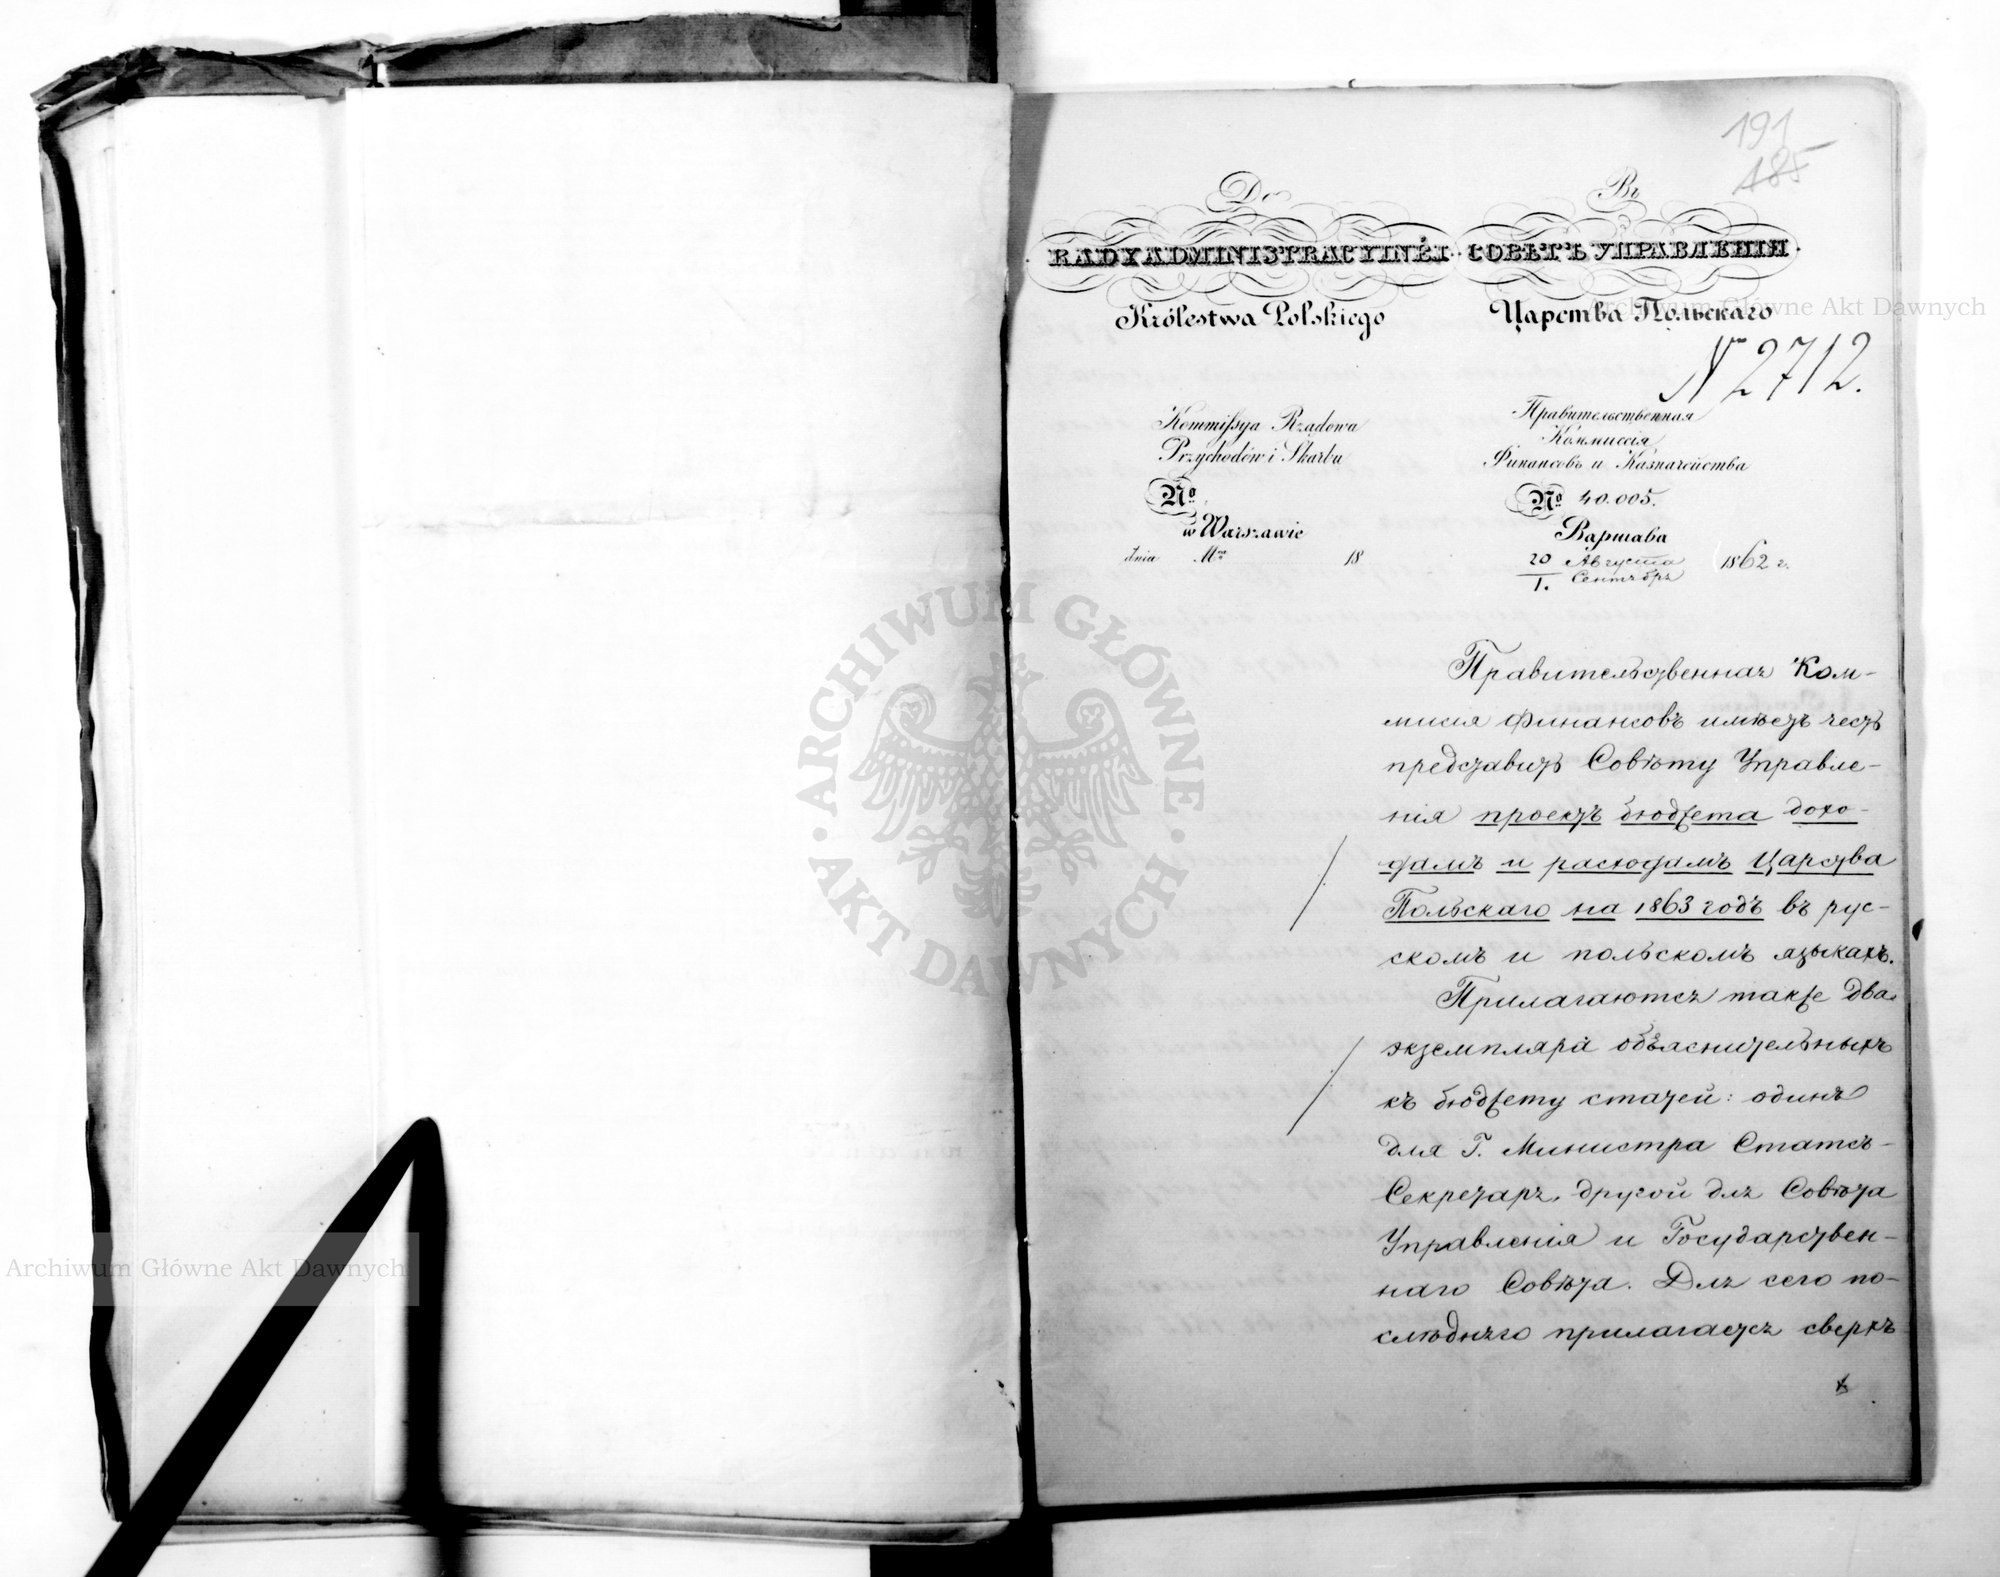 191
185
Do
RADY ADMINISTRACYINÉI
Królestwa Polskiego
Въ
СОВѢТЪ УПРАВЛЕНІЯ
Царства Польскаго
N 2712.
Kommissya Rządowa
Przychodów i Skarbu
No
w Warszawie
dnia Mca 18
Правительственная
Коммиссія
Финансовъ и Казначейства
No 40.005.
Варшава
20 Августа
1. Сентября
1862 г.
Правительственная Ком-
мисія Финансовъ имѣетъ честь
представить Совѣту Управле-
нія проектъ бюджета дохо-
дамъ и расходамъ Царства
Польскаго на 1863 годъ въ рус-
скомъ и польскомъ языкахъ.
Прилагаются также два
экземпляра объяснительныхъ
къ бюджету статей: одинъ
для Г. Министра Статсъ-
Секретаря, другой для Совѣта
Управленія и Государствен-
наго Совѣта. Для сего по-
слѣдняго прилагается сверхъ
Archiwum Główne Akt Dawnych
Archiwum Główne Akt Dawnych
· ARCHIWUM GŁÓWNE · AKT DAWNYCH